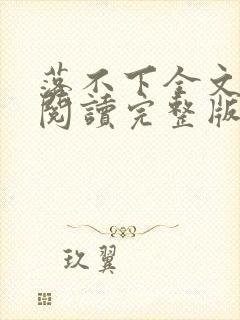 落不下全文
閱讀完整版
玖翼